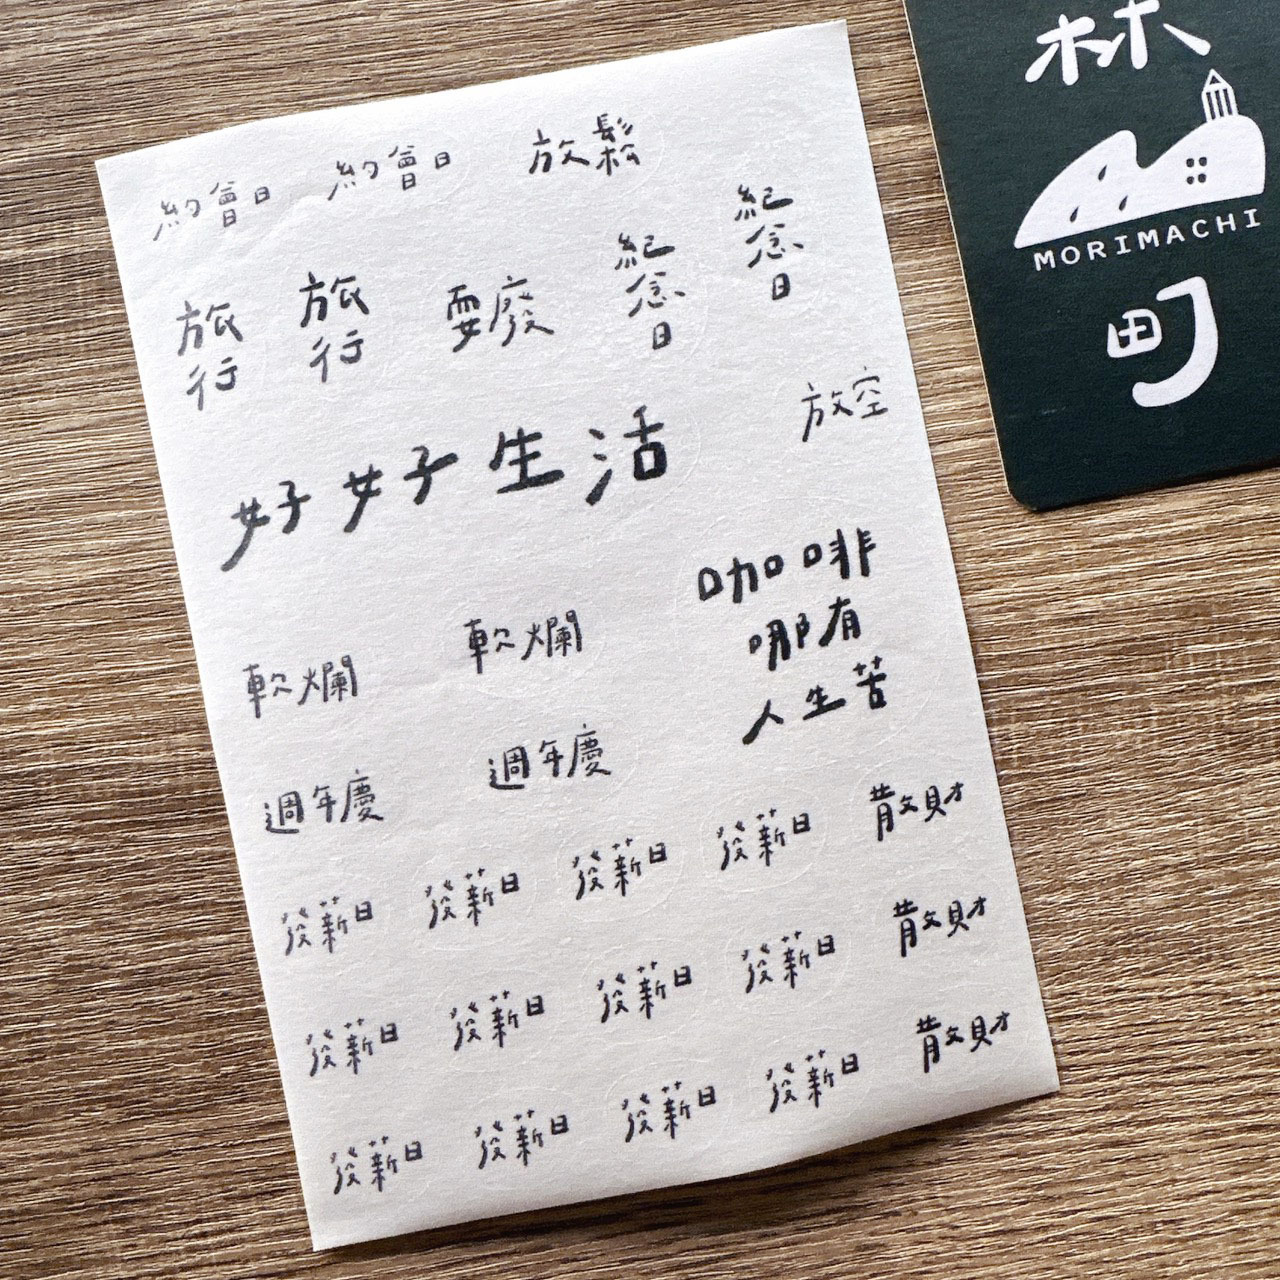 約會日 約會日 放鬆
旅行 旅行 耍廢 紀念日 紀念日
放空
好好生活
咖啡
哪有
人生苦
軟爛 軟爛
週年慶 週年慶
發薪日 發薪日 發薪日 發薪日 散財
發薪日 發薪日 發薪日 發薪日 散財
發薪日 發薪日 發薪日 發薪日 散財
森
MORIMACHI
町